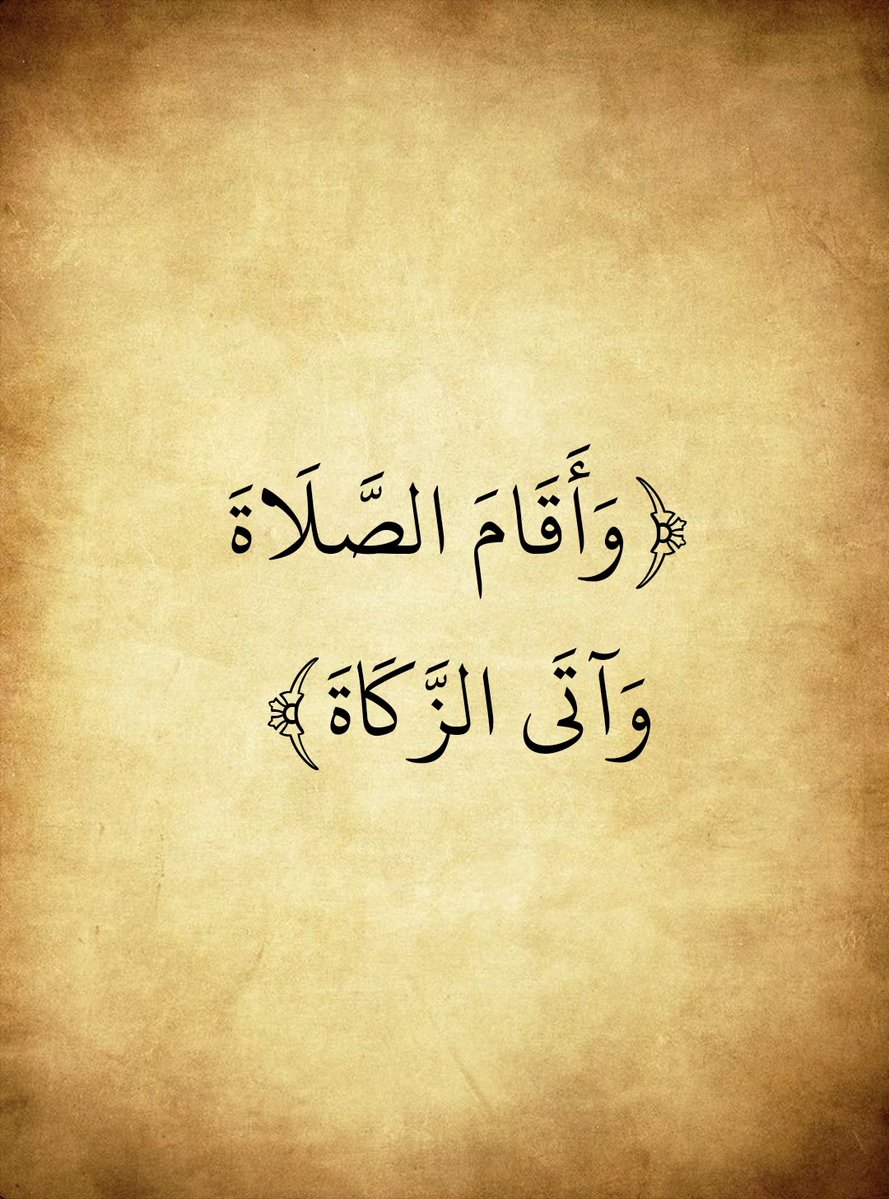 ﴿وَأَقَامَ الصَّلَاةَ
وَآتَى الزَّكَاةَ﴾